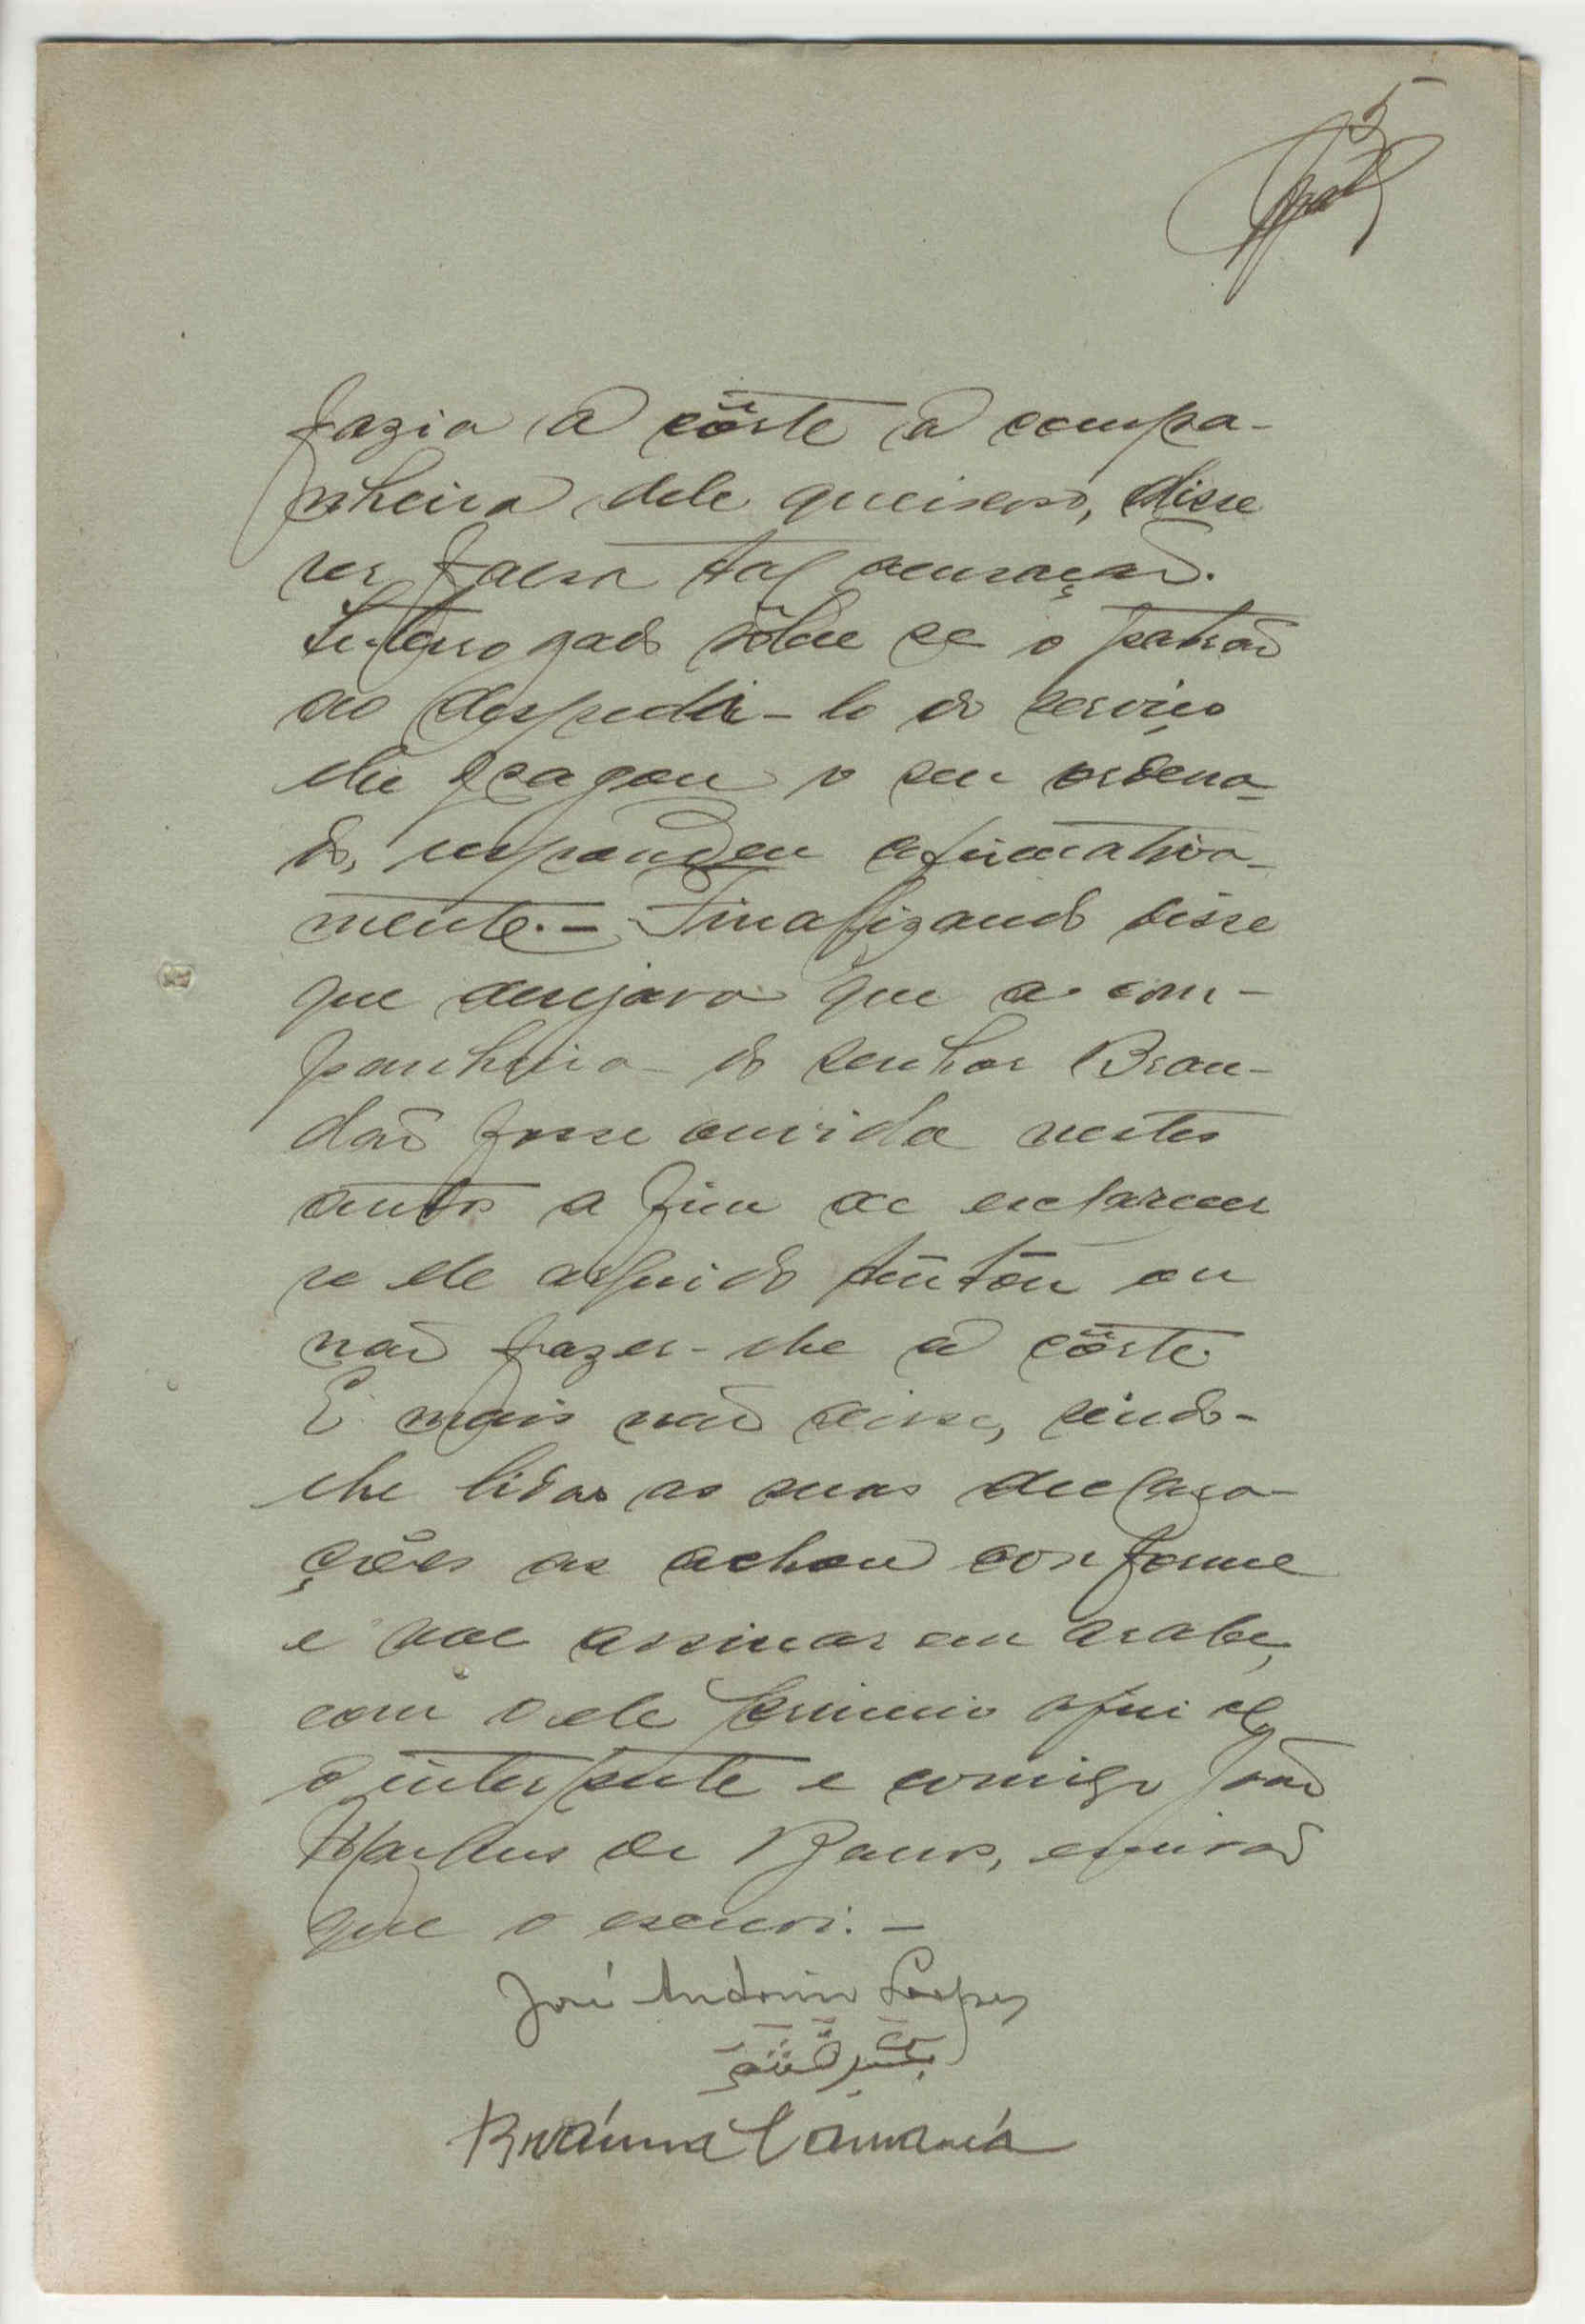 5
fazia a côrte a compa-
nheira dele queixoso, disse
ser falsa tal acusação.
Interrogado sôbre se o patrão
ao despedi-lo do serviço
lhe pagou o seu ordena-
do, respondeu afirmativa-
mente. - Finalizando disse
que desejava que a com-
panheira do senhor Bran-
dão fosse ouvida nestes
autos a fim de esclarecer
se ele arguido tentou ou
não fazer-lhe a côrte.
E mais não disse, sendo-
lhe lidas as suas declara-
ções as achou conforme
e vae assinar em arabe,
com o dele
o interprete e comigo João
Martins de Barros, escrivão
que o escrevi. -
José Antonio Lopes